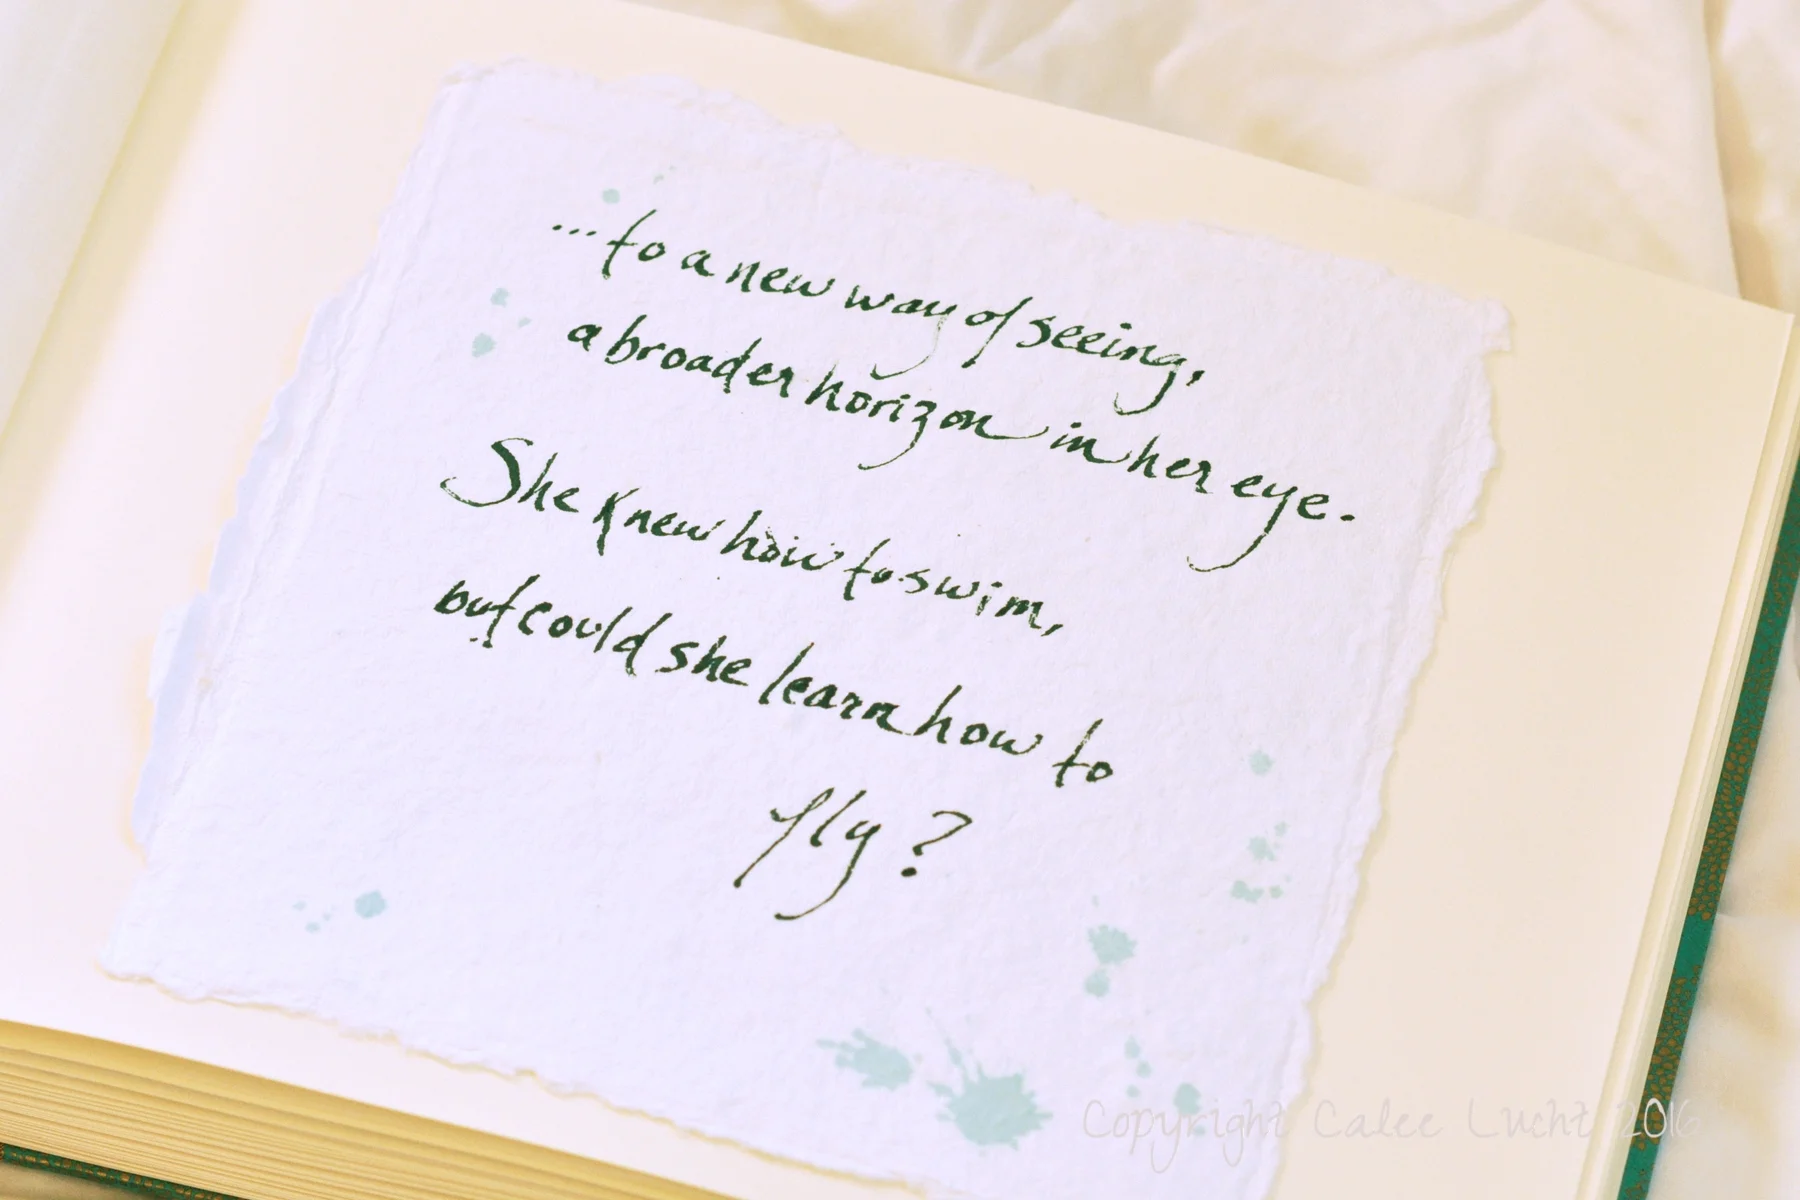 ...to a new way of seeing,
a broader horizon in her eye.
She knew how to swim,
but could she learn how to
fly?
Copyright Calee Lucht 2016